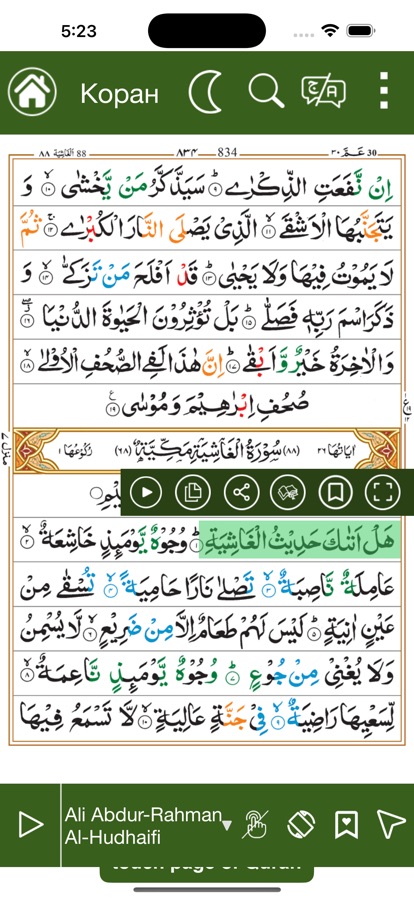 5:23
Коран
88 اَلْغَاشِيَة ٨٨
٨٣٤ 834
30 عَمَّ ٣٠
اِنْ نَّفَعَتِ الذِّكْرٰى ۹ سَيَذَّكَّرُ مَنْ يَّخْشٰى ۱۰ وَ
يَتَجَنَّبُهَا الْاَشْقَى ۱۱ الَّذِىْ يَصْلَى النَّارَ الْكُبْرٰى ۱۲ ثُمَّ
لَا يَمُوْتُ فِيْهَا وَلَا يَحْيٰى ۱۳ قَدْ اَفْلَحَ مَنْ تَزَكّٰى ۱۴ وَ
ذَكَرَ اسْمَ رَبِّهٖ فَصَلّٰى ۱۵ بَلْ تُؤْثِرُوْنَ الْحَيٰوةَ الدُّنْيَا ۱۶
وَالْاٰخِرَةُ خَيْرٌ وَّاَبْقٰى ۱۷ اِنَّ هٰذَا لَفِى الصُّحُفِ الْاُوْلٰى ۱۸
صُحُفِ اِبْرٰهِيْمَ وَمُوْسٰى ۱۹
اٰيَاتُهَا ٢٦ (٨٨) سُوْرَةُ الْغَاشِيَةِ مَكِّيَّةٌ (٦٨) رُكُوْعُهَا ١
منزل ٧
هَلْ اَتٰىكَ حَدِيْثُ الْغَاشِيَةِ ۱ وُجُوْهٌ يَّوْمَئِذٍ خَاشِعَةٌ ۲
عَامِلَةٌ نَّاصِبَةٌ ۳ تَصْلٰى نَارًا حَامِيَةً ۴ تُسْقٰى مِنْ
عَيْنٍ اٰنِيَةٍ ۵ لَيْسَ لَهُمْ طَعَامٌ اِلَّا مِنْ ضَرِيْعٍ ۶ لَّا يُسْمِنُ
وَلَا يُغْنِىْ مِنْ جُوْعٍ ۷ وُجُوْهٌ يَّوْمَئِذٍ نَّاعِمَةٌ ۸
لِّسَعْيِهَا رَاضِيَةٌ ۹ فِىْ جَنَّةٍ عَالِيَةٍ ۱۰ لَّا تَسْمَعُ فِيْهَا
Ali Abdur-Rahman
Al-Hudhaifi
touch page of Quran